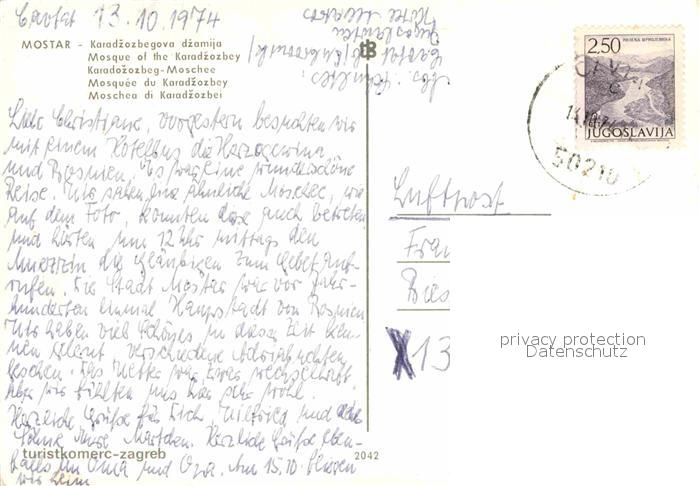 Cavtat 13.10.1974
MOSTAR - Karadžozbegova džamija
Mosque of the Karadžozbey
Karadožozbeg-Moschee
Mosquée du Karadžozbey
Moschea di Karadžozbei
Liebe Christiane, vorgestern besuchten wir
mit einem Hotelbus die Herzegowina
und Bosnien. Es war eine wunderschöne
Reise. Wir sahen eine ähnliche Moschee, wie
auf dem Foto, konnten diese auch betreten
und hörten um 12 Uhr mittags den
Muezzin die Gläubigen zum Gebet auf-
rufen. Die Stadt Mostar war vor Jahr-
hunderten einmal Hauptstadt von Bosnien
Wir haben viel Schönes in dieser Zeit ken-
nen gelernt verschiedene
gesehen. Das Wetter war etwas wechselhaft.
Aber wir fühlten uns hier sehr wohl.
Herzliche Grüße für Dich, Wilfried und die
Söhne Herzliche Grüße eben-
falls an Oma und Opa. Am 15.10. fliegen
wir heim
turistkomerc-zagreb
2042
Cavtat
Jugoslawien
Hotel
2.50
JUGOSLAVIJA
50210
Luftpost
Fran
Dies
X13
privacy protection
Datenschutz